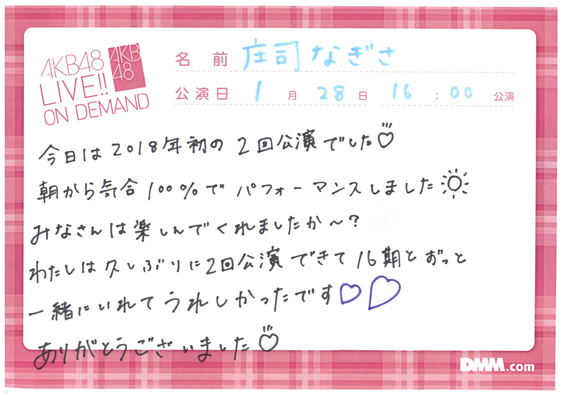 AKB48
LIVE!!
ON DEMAND
AKB
48
名前 庄司なぎさ
公演日 1月28日 16:00公演
今日は2018年初の2回公演でした♡
朝から気合100%でパフォーマンスしました☀
みなさんは楽しんでくれましたか〜?
わたしは久しぶりに2回公演できて16期とずっと
一緒にいれてうれしかったです♡♡
ありがとうございました♡
DMM.com